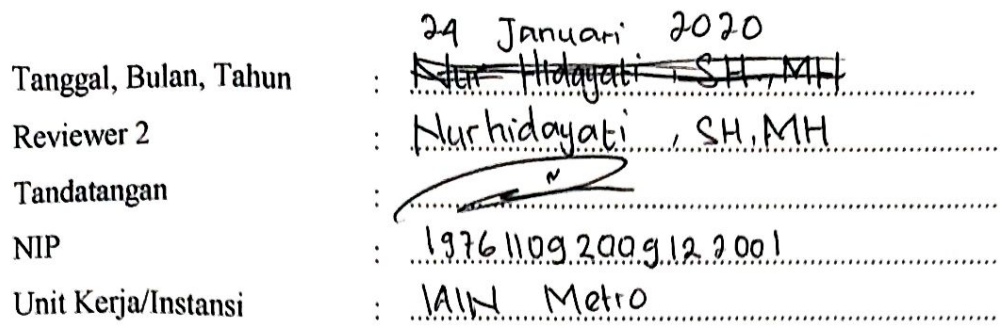 24 Januari 2020
Tanggal, Bulan, Tahun : Nur Hidayati, SH, MH
Reviewer 2 : Nurhidayati, SH, MH
Tandatangan :
NIP : 197611092009122001
Unit Kerja/Instansi : IAIN Metro